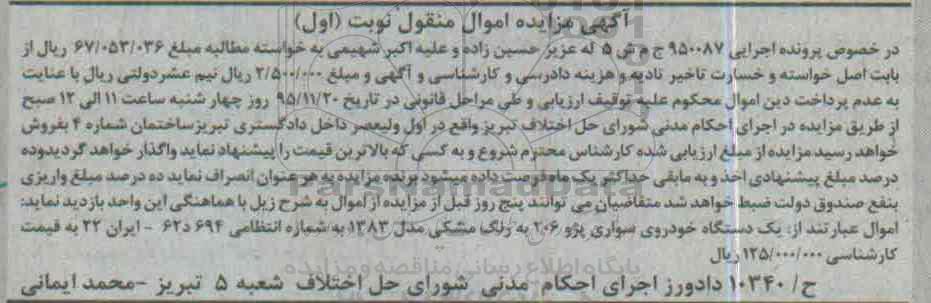 آگهی مزایده اموال منقول نوبت (اول)
در خصوص پرونده اجرایی ۹۵۰۰۸۷ ج م ش ۵ له عزیز حسین زاده و علیه اکبر شهیمی به خواسته مطالبه مبلغ ۶۷/۰۵۳/۰۳۶ ریال از
بابت اصل خواسته و خسارت تاخیر تادیه و هزینه دادرسی و کارشناسی و آگهی و مبلغ ۲/۵۰۰/۰۰۰ ریال نیم عشردولتی ریال با عنایت
به عدم پرداخت دین اموال محکوم علیه توقیف ارزیابی و طی مراحل قانونی در تاریخ ۹۵/۱۱/۲۰ روز چهار شنبه ساعت ۱۱ الی ۱۲ صبح
از طریق مزایده در اجرای احکام مدنی شورای حل اختلاف تبریز واقع در اول ولیعصر داخل دادگستری تبریز ساختمان شماره ۴ بفروش
خواهد رسید مزایده از مبلغ ارزیابی شده کارشناس محترم شروع و به کسی که بالاترین قیمت را پیشنهاد نماید واگذار خواهد گردیدوده
درصد مبلغ پیشنهادی اخذ و به مابقی حداکثر یک ماه فرصت داده میشود برنده مزایده به هر عنوان انصراف نماید ده درصد مبلغ واریزی
بنفع صندوق دولت ضبط خواهد شد متقاضیان می توانند پنج روز قبل از مزایده از اموال به شرح زیل با هماهنگی این واحد بازدید نماید:
اموال عبارتند از: یک دستگاه خودروی سواری پژو ۲۰۶ به رنگ مشکی مدل ۱۳۸۳ به شماره انتظامی ۶۹۴ د۶۲ - ایران ۲۲ به قیمت
کارشناسی ۱۲۵/۰۰۰/۰۰۰ ریال
ح/ ۱۰۳۴۰ دادورز اجرای احکام مدنی شورای حل اختلاف شعبه ۵ تبریز -محمد ایمانی
ParsNamadData
پایگاه اطلاع رسانی مناقصه و مزایده